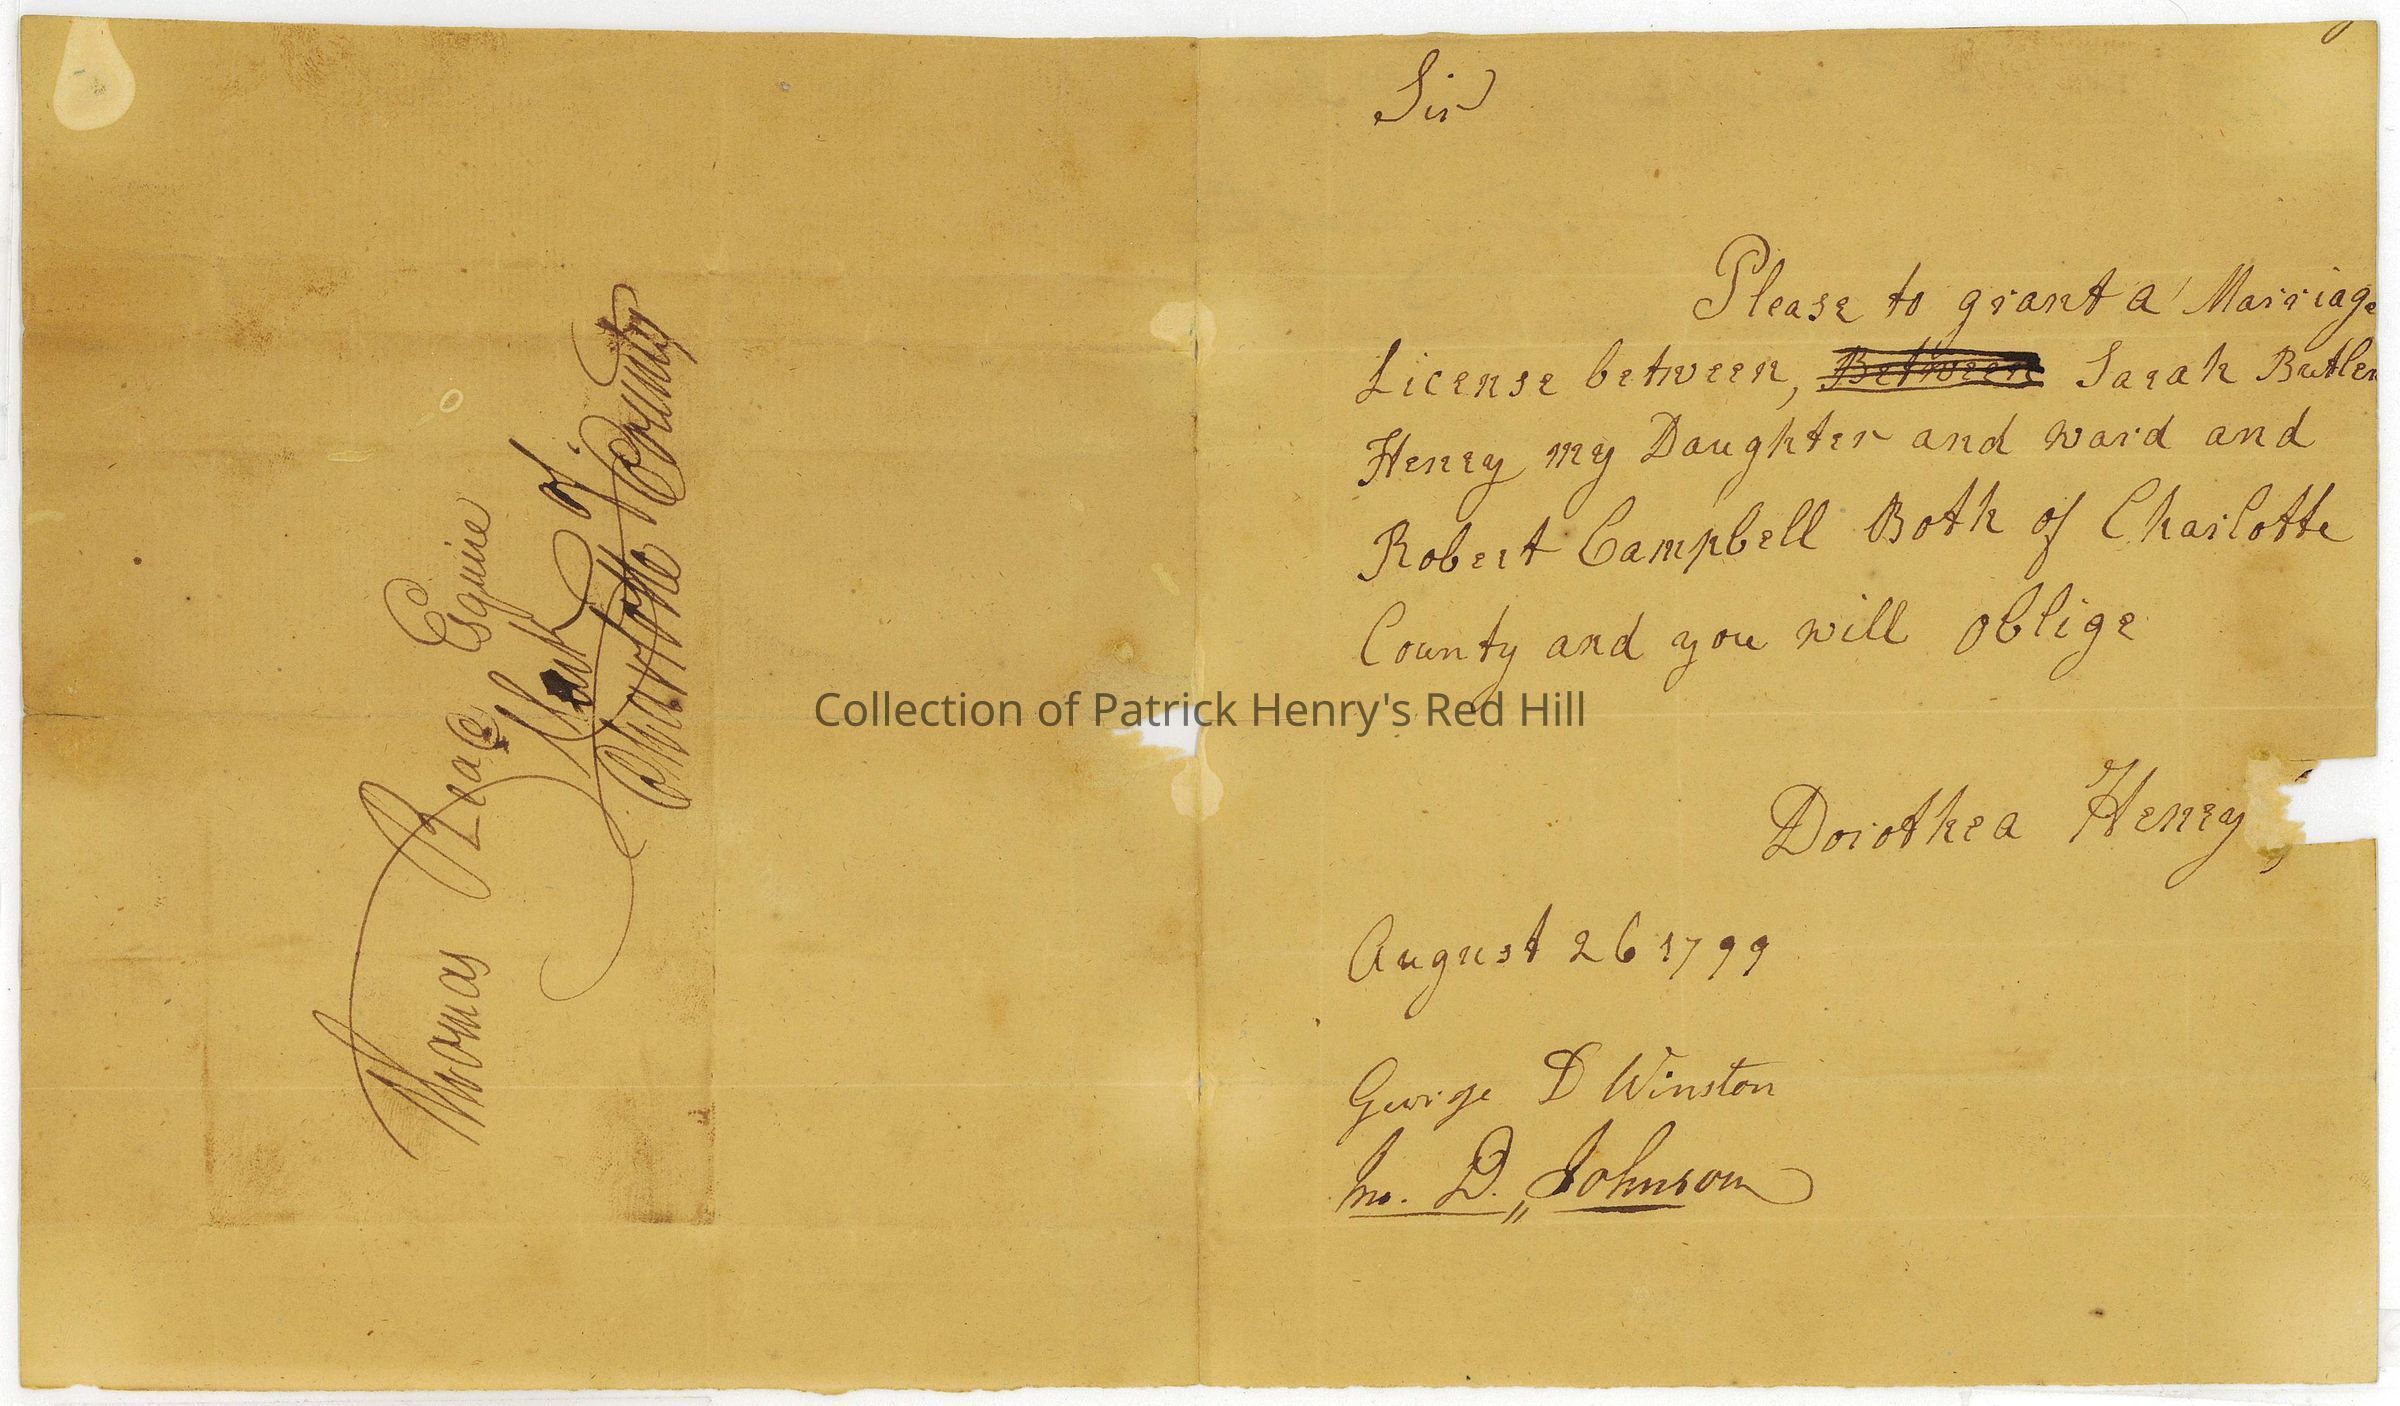 Thomas Read Esquire
Clerk of
Charlotte County
Sir
Please to grant a Marriage
License between, Between Sarah Butler
Henry my Daughter and ward and
Robert Campbell Both of Charlotte
County and you will oblige
Collection of Patrick Henry's Red Hill
Dorothea Henry
August 26 1799
George D Winston
D. Johnson